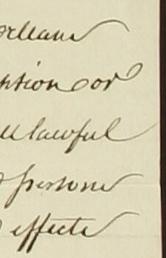 orleans
ption or
ll lawful
persons
effects